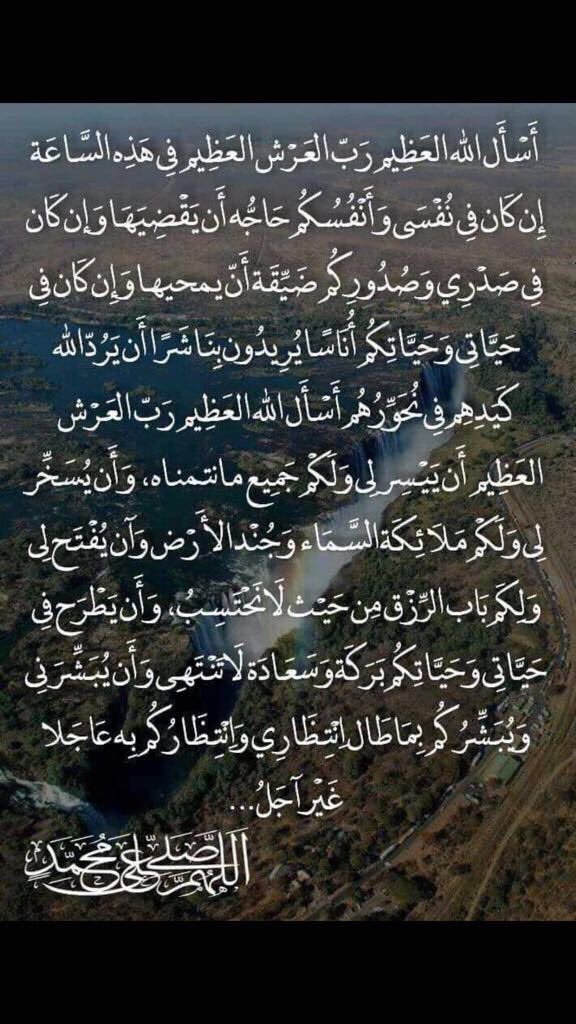 أَسْأَل الله العَظِيم رَبّ العَرْش العَظِيم فِي هَذِه السَّاعَة
إِن كَان فِي نُفْسَى وَأَنْفُسُكُم حَاجُّه أَن يَقْضِيَهَا وَإِن كَان
فِي صَدْرِي وَصُدُورِكُم ضَيِّقَة أَنّ يمحيها وَإِن كَان فِي
حَيَّاتِي وَحَيَّاتِكُم أُنَاسًا يُرِيدُون بِنَا شَرًا أَن يَرُدّ الله
كَيَدِهِم فِي نُحَوِّرُهُم أَسْأَل الله العَظِيم رَبّ العَرْش
العَظِيم أَن يَيْسِر لِي وَلَكُم جَمِيع مانتمناه، وَأَن يُسَخِّر
لِي وَلَكُم مَلَائِكَة السَّمَاء وَجُنْد الأَرْض وَآن يُفْتَح لِي
وَلِكَم بَاب الرِّزْق مِن حَيْث لَا نَحْتَسِبُ، وَأَن يَطْرَح فِي
حَيَّاتِي وَحَيَّاتِكُم بَرَكَة وَسَعَادَة لَا تَنْتَهِي وَأَن يُبَشِّرَنِي
وَيُبَشِّرُكُم بِمَا طَال اِنْتِظَارِي وَاِنْتِظَارُكُم بِه عَاجَلا
غَيْر آجَلُ...
اَللّهُمَّ صَلِّ عَلَى مُحَمَّدٍ